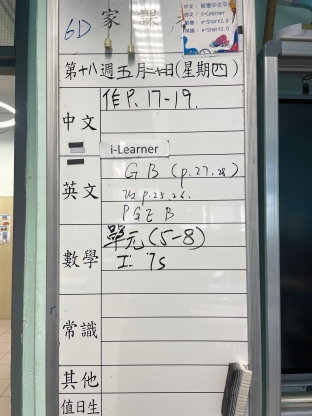 6D
家課
中文：智愛中文平
英文：i-Learner
數學：e-Smart2.0
常識：e-Smart2.0
第十八週五月十日(星期四)
中文
作P.17-19.
i-Learner
英文
GB (p.27,28)
p.25,26.
PGE B
數學
單元(5-8)
工 75
常識
其他
值日生